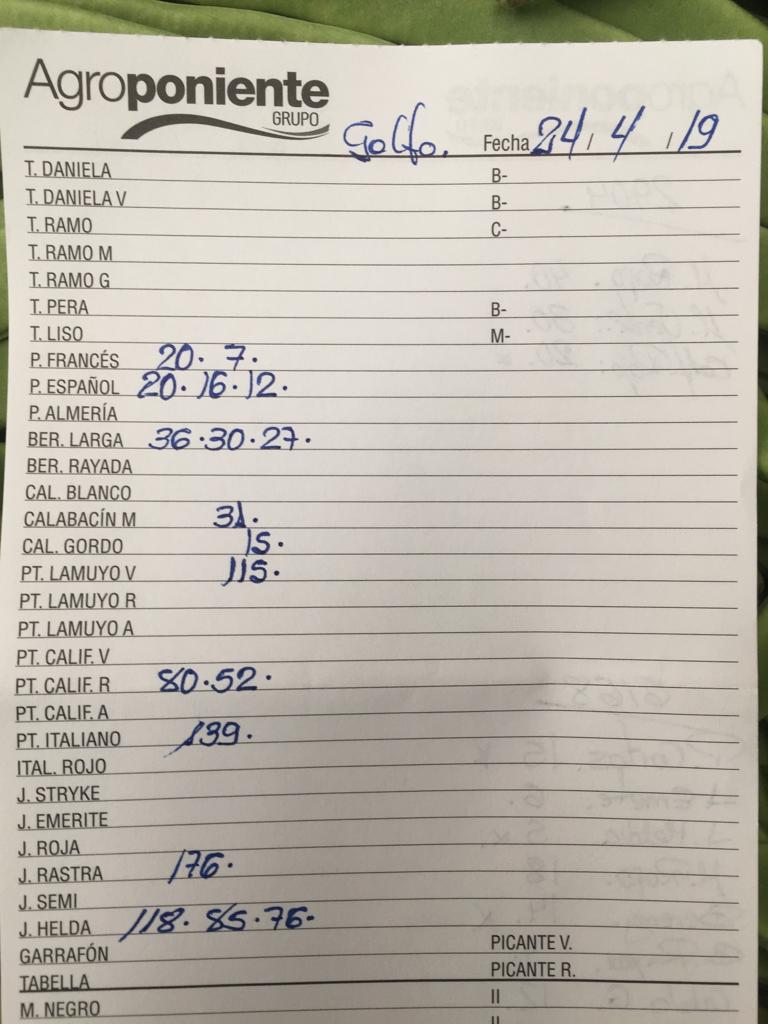 Agroponiente
GRUPO
Golfo. Fecha 24/4/19
T. DANIELA B-
T. DANIELA V B-
T. RAMO C-
T. RAMO M
T. RAMO G
T. PERA B-
T. LISO M-
P. FRANCÉS 20. 7.
P. ESPAÑOL 20. 16. 12.
P. ALMERÍA
BER. LARGA 36. 30. 27.
BER. RAYADA
CAL. BLANCO
CALABACÍN M 31.
CAL. GORDO 15.
PT. LAMUYO V 115.
PT. LAMUYO R
PT. LAMUYO A
PT. CALIF. V
PT. CALIF. R 80. 52.
PT. CALIF. A
PT. ITALIANO 139.
ITAL. ROJO
J. STRYKE
J. EMERITE
J. ROJA
J. RASTRA 176.
J. SEMI
J. HELDA 118. 85. 76.
GARRAFÓN PICANTE V.
TABELLA PICANTE R.
M. NEGRO II